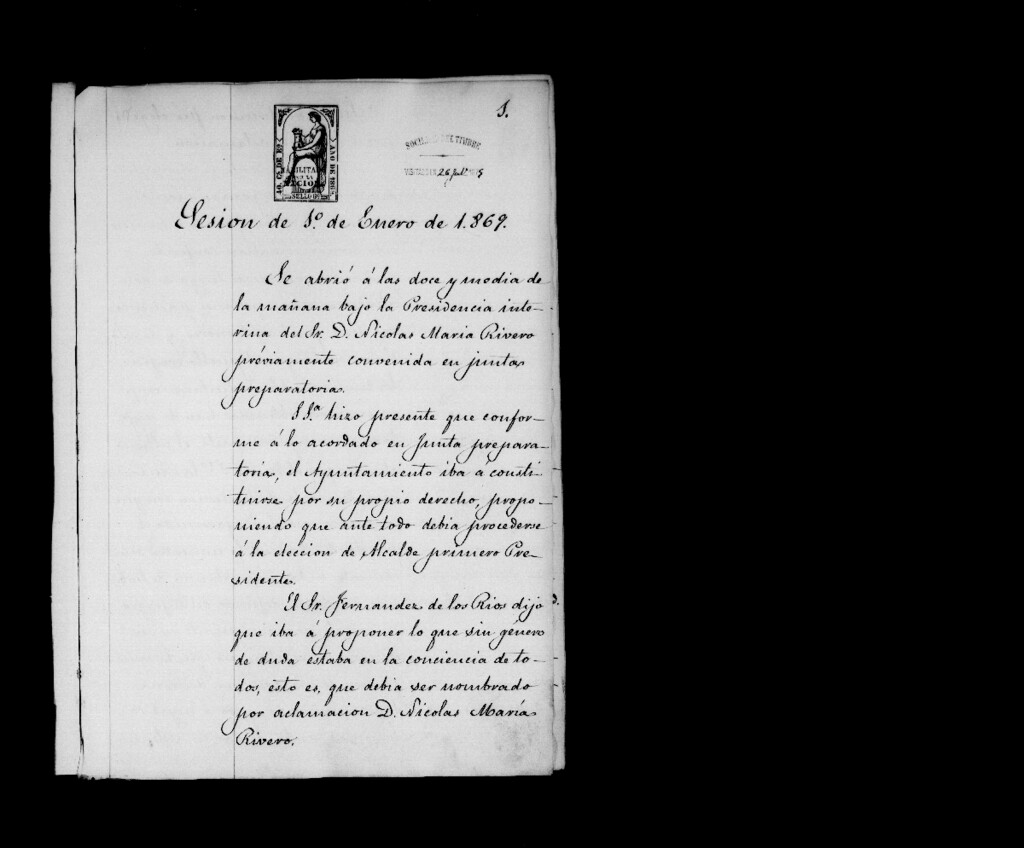 1.
40. Cs. DE Eo.
AÑO DE 1869
HABILITADO
POR LA
NACION
SELLO
SOCIEDAD DEL TIMBRE
26 Jul
Sesion de 1.º de Enero de 1.869.
Se abrió á las doce y media de
la mañana bajo la Presidencia inte-
rina del Sr. D. Nicolas Maria Rivero
préviamente convenida en juntas
preparatoria.
S Sª hizo presente que confor-
me á lo acordado en Junta prepara-
toria, el Ayuntamiento iba á consti-
tuirse por su propio derecho, propo-
niendo que ante todo debia procederse
á la eleccion de Alcalde primero Pre-
sidente.
El Sr. Fernandez de los Rios dijo
que iba á proponer lo que sin género
de duda estaba en la conciencia de to-
dos, esto es, que debia ser nombrado
por aclamacion D. Nicolas María
Rivero.